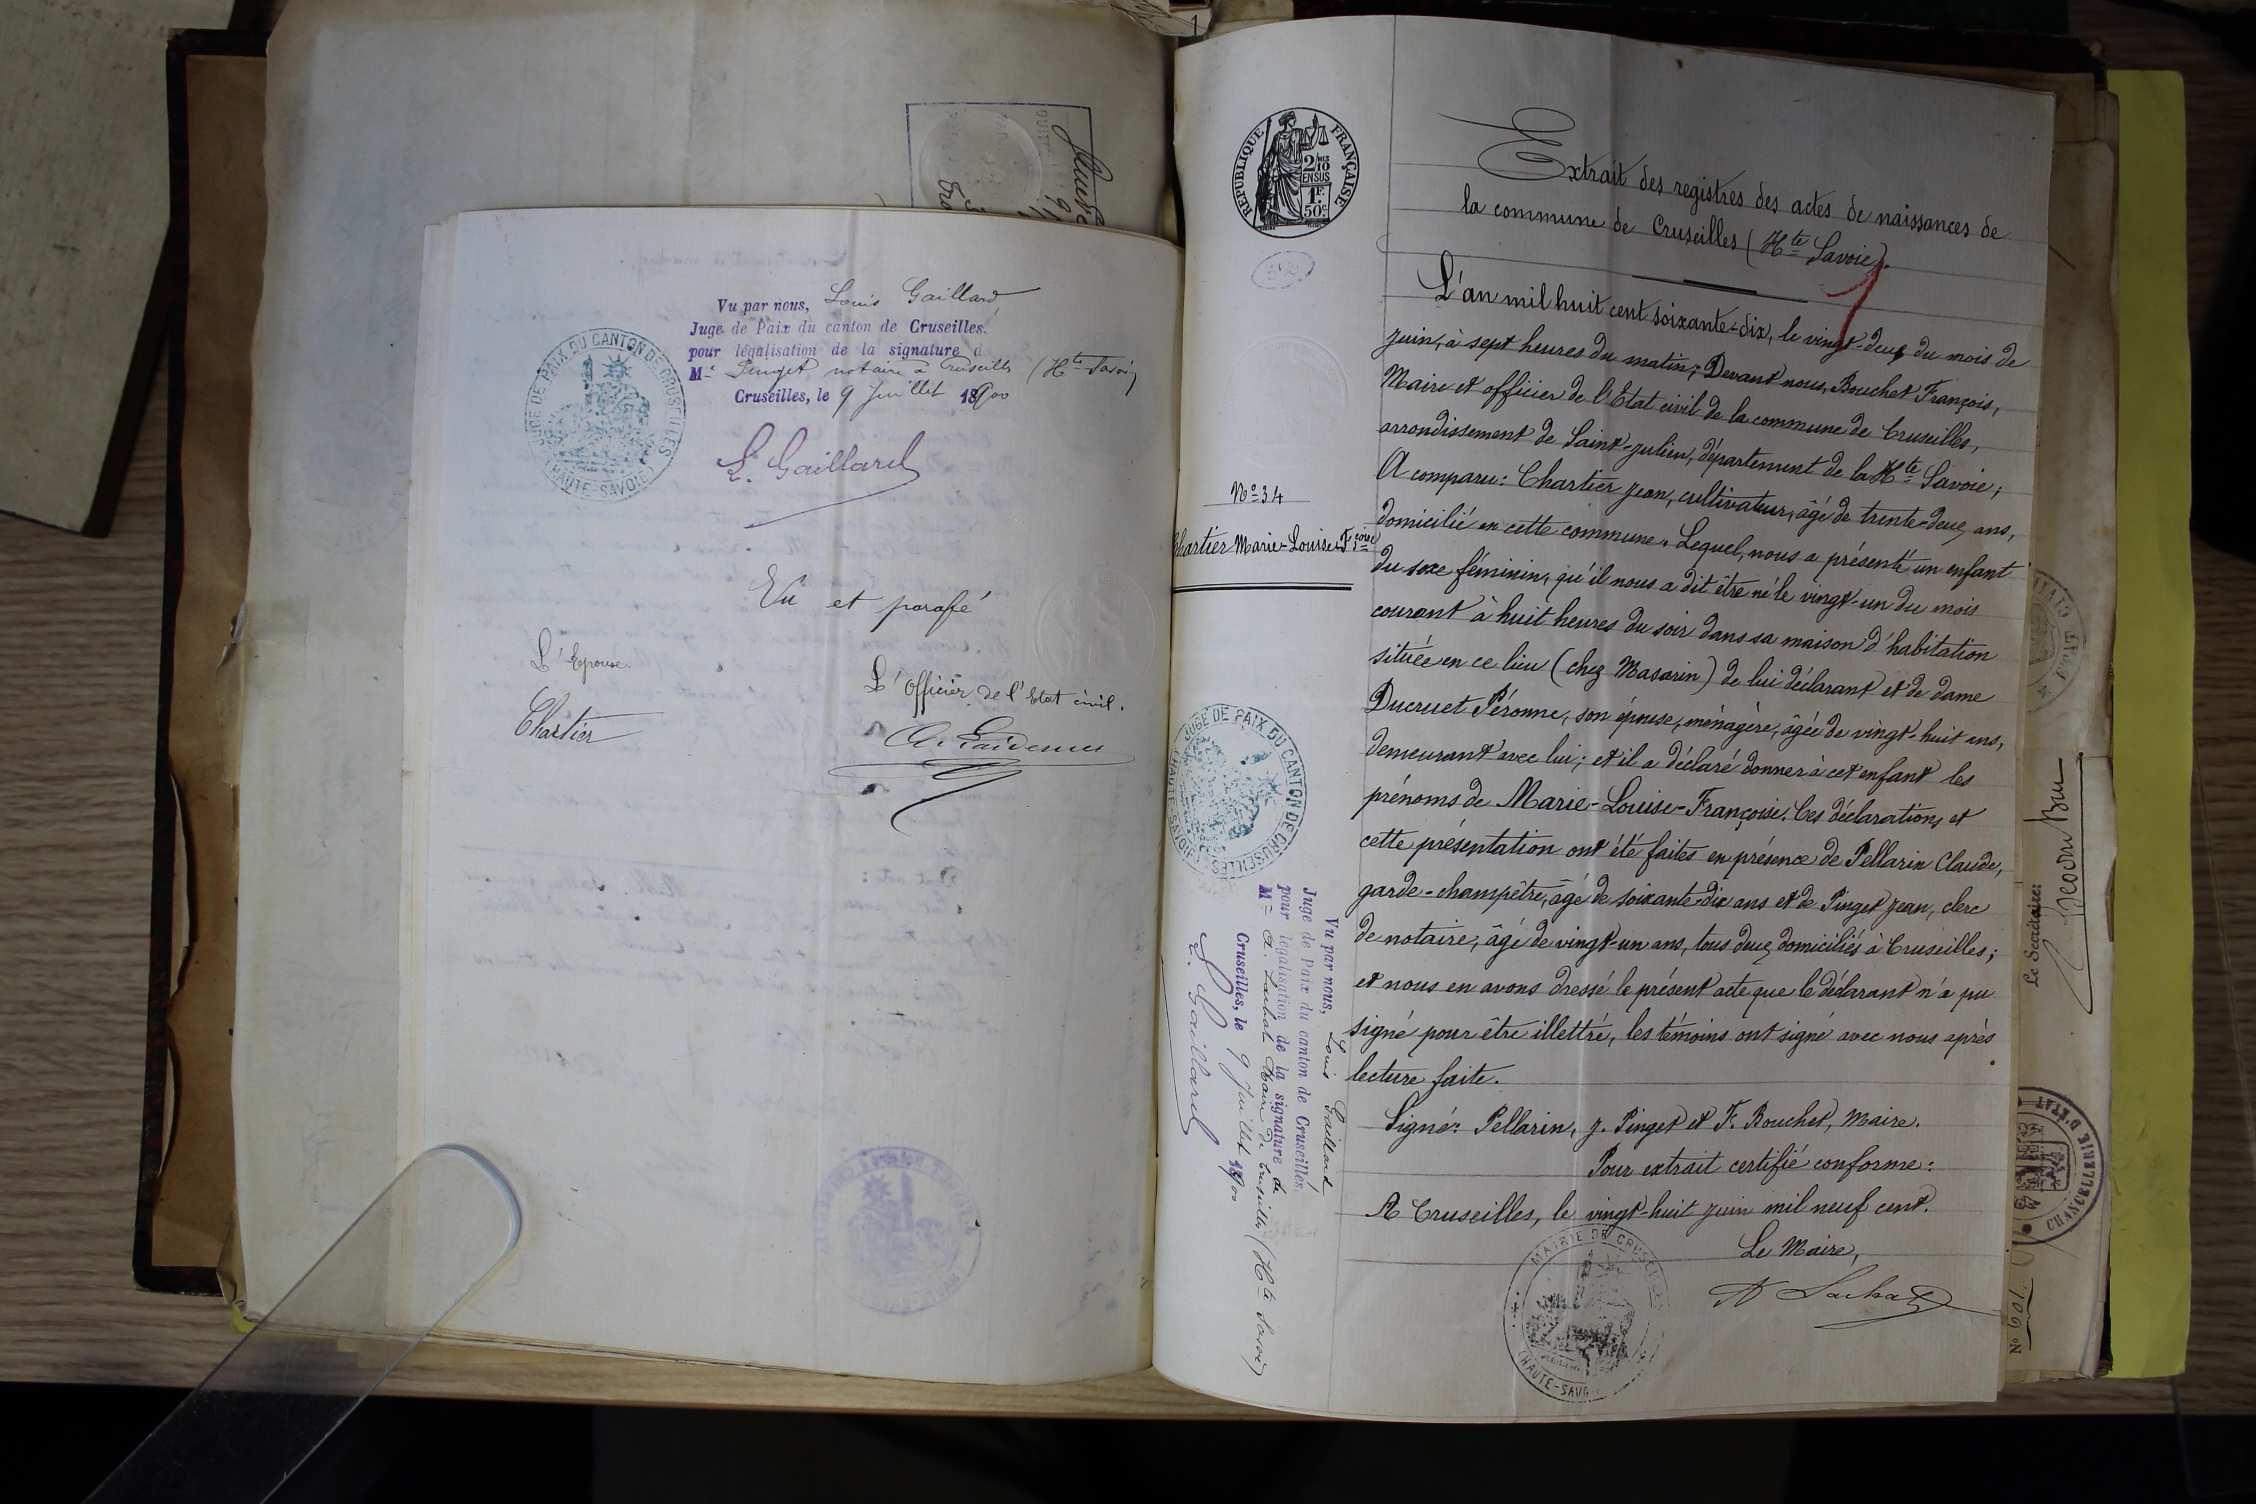 Vu par nous, Louis Gaillard
Juge de Paix du canton de Cruseilles.
pour légalisation de la signature d
Me Pinget notaire à Cruseilles (Hte Savoie)
Cruseilles, le 9 Juillet 1900
JUGE DE PAIX DU CANTON DE CRUSEILLES
(HAUTE-SAVOIE)
L. Gaillard
Vu et parafé
L'Epouse.
Chartier
L'Officier de l'Etat civil.
RÉPUBLIQUE FRANÇAISE
2/10 EN SUS
1F. 50c
Extrait des registres des actes de naissances de
la commune de Cruseilles (Hte Savoie).
L'an mil huit cent soixante-dix, le vingt-deux du mois de
juin, à sept heures du matin; Devant nous, Bouchet François,
Maire et officier de l'Etat civil de la commune de Cruseilles,
arrondissement de Saint-Julien, département de la Hte Savoie;
A comparu: Chartier Jean, cultivateur, âgé de trente-deux ans,
domicilié en cette commune. Lequel, nous a présenté un enfant
du sexe féminin, qu'il nous a dit être né le vingt-un du mois
courant à huit heures du soir dans sa maison d'habitation
située en ce lieu (chez Masarin) de lui déclarant et de dame
Ducruet Péronne, son épouse, ménagère, âgée de vingt-huit ans,
demeurant avec lui; et il a déclaré donner à cet enfant les
prénoms de Marie-Louise-Françoise. Ces déclarations et
cette présentation ont été faites en présence de Pellarin Claude,
garde-champêtre, âgé de soixante-dix ans et de Pinget Jean, clerc
de notaire, âgé de vingt-un ans, tous deux domiciliés à Cruseilles;
et nous en avons dressé le présent acte que le déclarant n'a pu
signé pour être illettré, les témoins ont signé avec nous après
lecture faite.
Signé: Pellarin, J. Pinget et F. Bouchet, Maire.
Pour extrait certifié conforme:
A Cruseilles, le vingt-huit juin mil neuf cent.
Le Maire,
A Lachat
MAIRIE DE CRUSEILLES
(HAUTE-SAVOIE)
No 34
Chartier Marie-Louise-Fçoise
JUGE DE PAIX DU CANTON DE CRUSEILLES
(HAUTE-SAVOIE)
Vu par nous, Louis Gaillard
Juge de Paix du canton de Cruseilles.
pour légalisation de la signature de
Mr A. Lachat Maire de Cruseilles (Hte Savoie)
Cruseilles, le 9 Juillet 1900
L. Gaillard
Le Secrétaire:
CHANCELLERIE D'ETAT
No 601